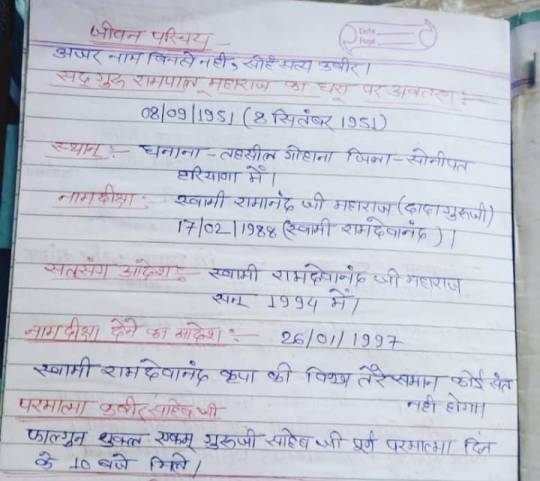 जीवन परिचय
Date
Page
अजर नाम विनसे नहीं, सोई सत्य कबीर।
सद् गुरु रामपाल महाराज का धरा पर अवतरण :-
08/09/1951 (8 सितंबर 1951)
स्थान :- धनाना - तहसील गोहाना जिला - सोनीपत
हरियाणा में।
नामदीक्षा :- स्वामी रामानंद जी महाराज (दादा गुरुजी)
17/02/1988 (स्वामी रामदेवानंद)।
सतसंग आदेश :- स्वामी रामदेवानंद जी महाराज
सन् 1994 में।
नामदीक्षा देने का आदेश :- 26/01/1997
स्वामी रामदेवानंद कृपा की तेरे समान कोई संत
नही होगा।
परमात्मा कबीर साहेब जी
फाल्गुन शुक्ल एकम् गुरुजी साहेब जी पूर्ण परमात्मा दिन
के 10 बजे मिले।